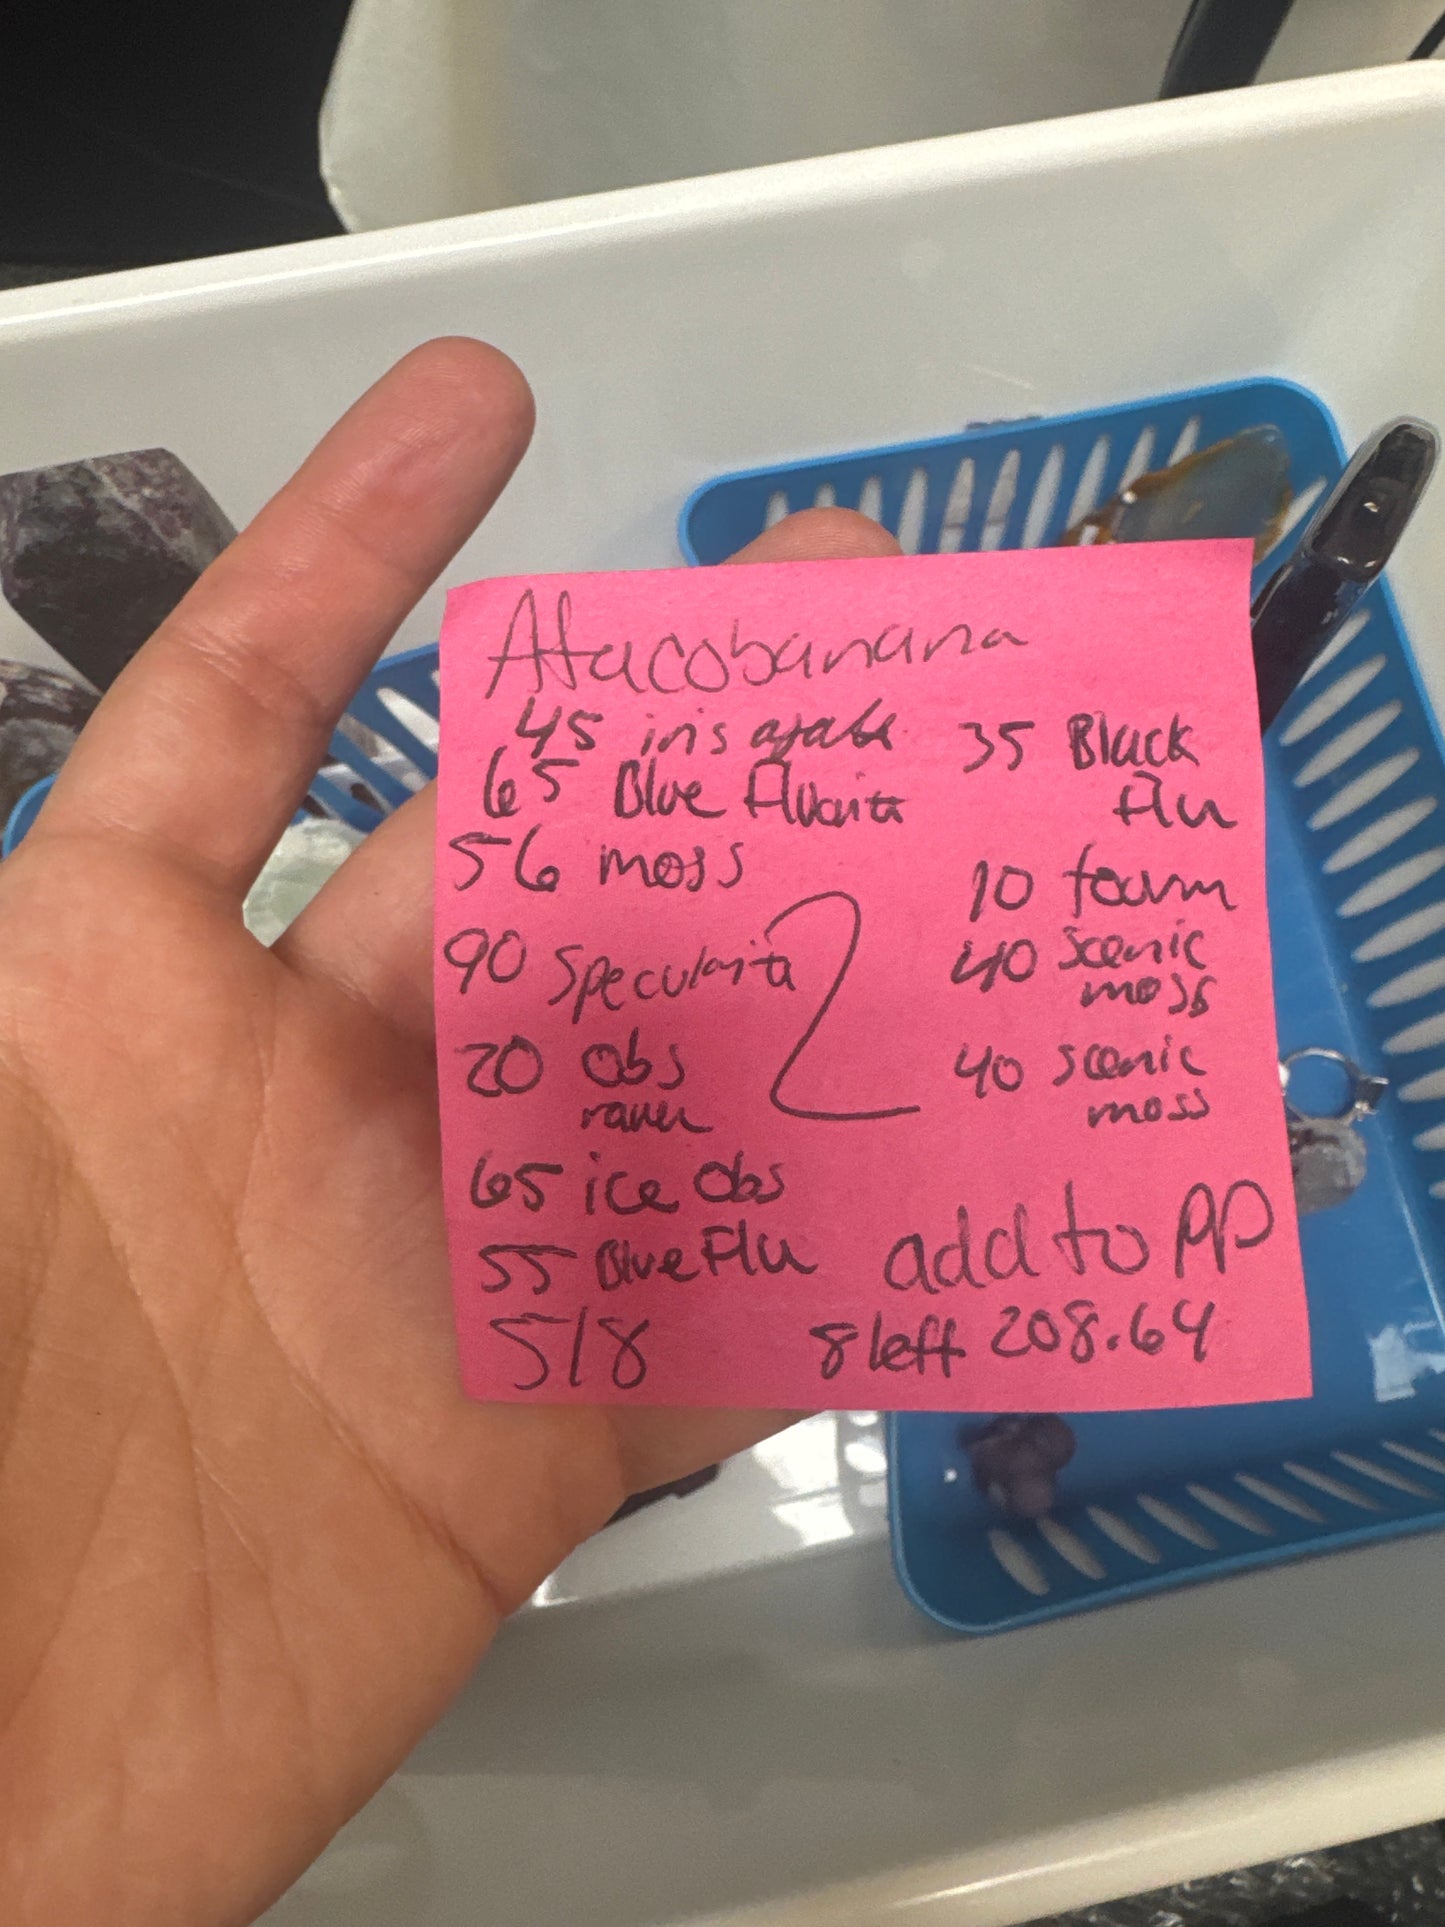 Atacobanana
45 iris agate
65 Blue Fluorite
56 moss
90 Specularite
20 obs
raven
65 ice obs
55 Blue Flu
518
35 Black
Flu
10 foam
40 scenic
moss
40 scenic
moss
add to PP
8 left 208.64